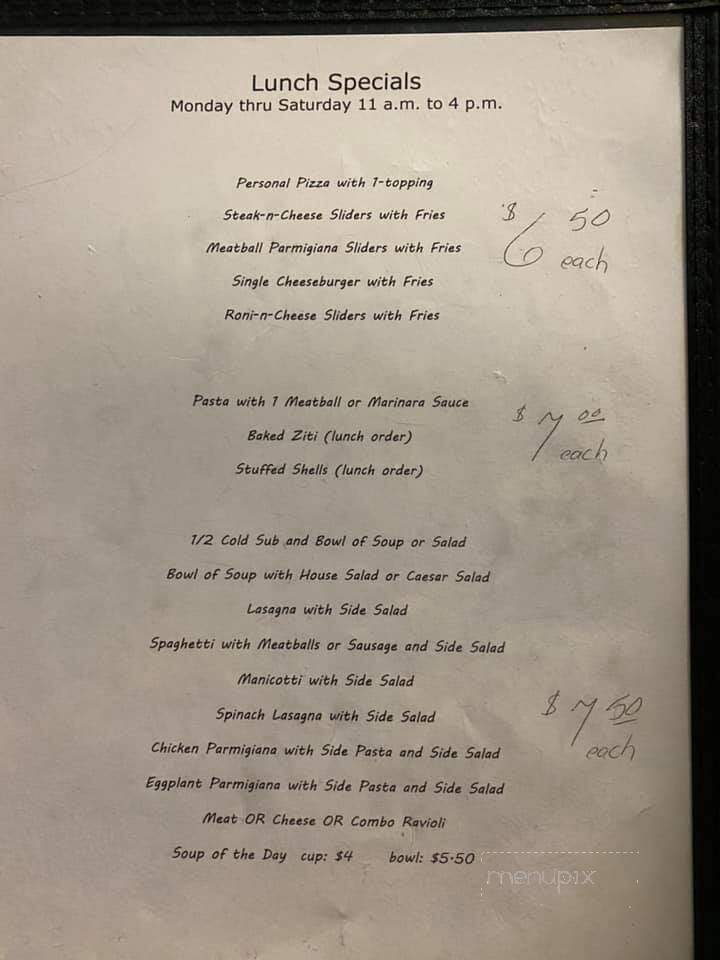 Lunch Specials
Monday thru Saturday 11 a.m. to 4 p.m.
Personal Pizza with 1-topping
Steak-n-Cheese Sliders with Fries
Meatball Parmigiana Sliders with Fries
Single Cheeseburger with Fries
Roni-n-Cheese Sliders with Fries
$6 50
each
Pasta with 1 Meatball or Marinara Sauce
Baked Ziti (lunch order)
Stuffed Shells (lunch order)
$7 00
each
1/2 Cold Sub and Bowl of Soup or Salad
Bowl of Soup with House Salad or Caesar Salad
Lasagna with Side Salad
Spaghetti with Meatballs or Sausage and Side Salad
Manicotti with Side Salad
Spinach Lasagna with Side Salad
Chicken Parmigiana with Side Pasta and Side Salad
Eggplant Parmigiana with Side Pasta and Side Salad
Meat OR Cheese OR Combo Ravioli
$7 50
each
Soup of the Day cup: $4 bowl: $5.50
menupix